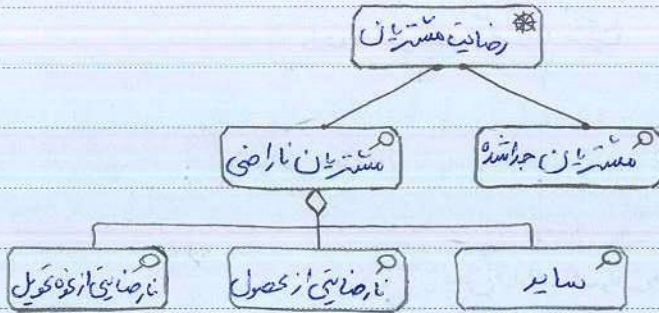 رضایت مشتریان
مشتریان جدا شده
مشتریان ناراضی
سایر
نارضایتی از محصول
نارضایتی از نحوه تحویل